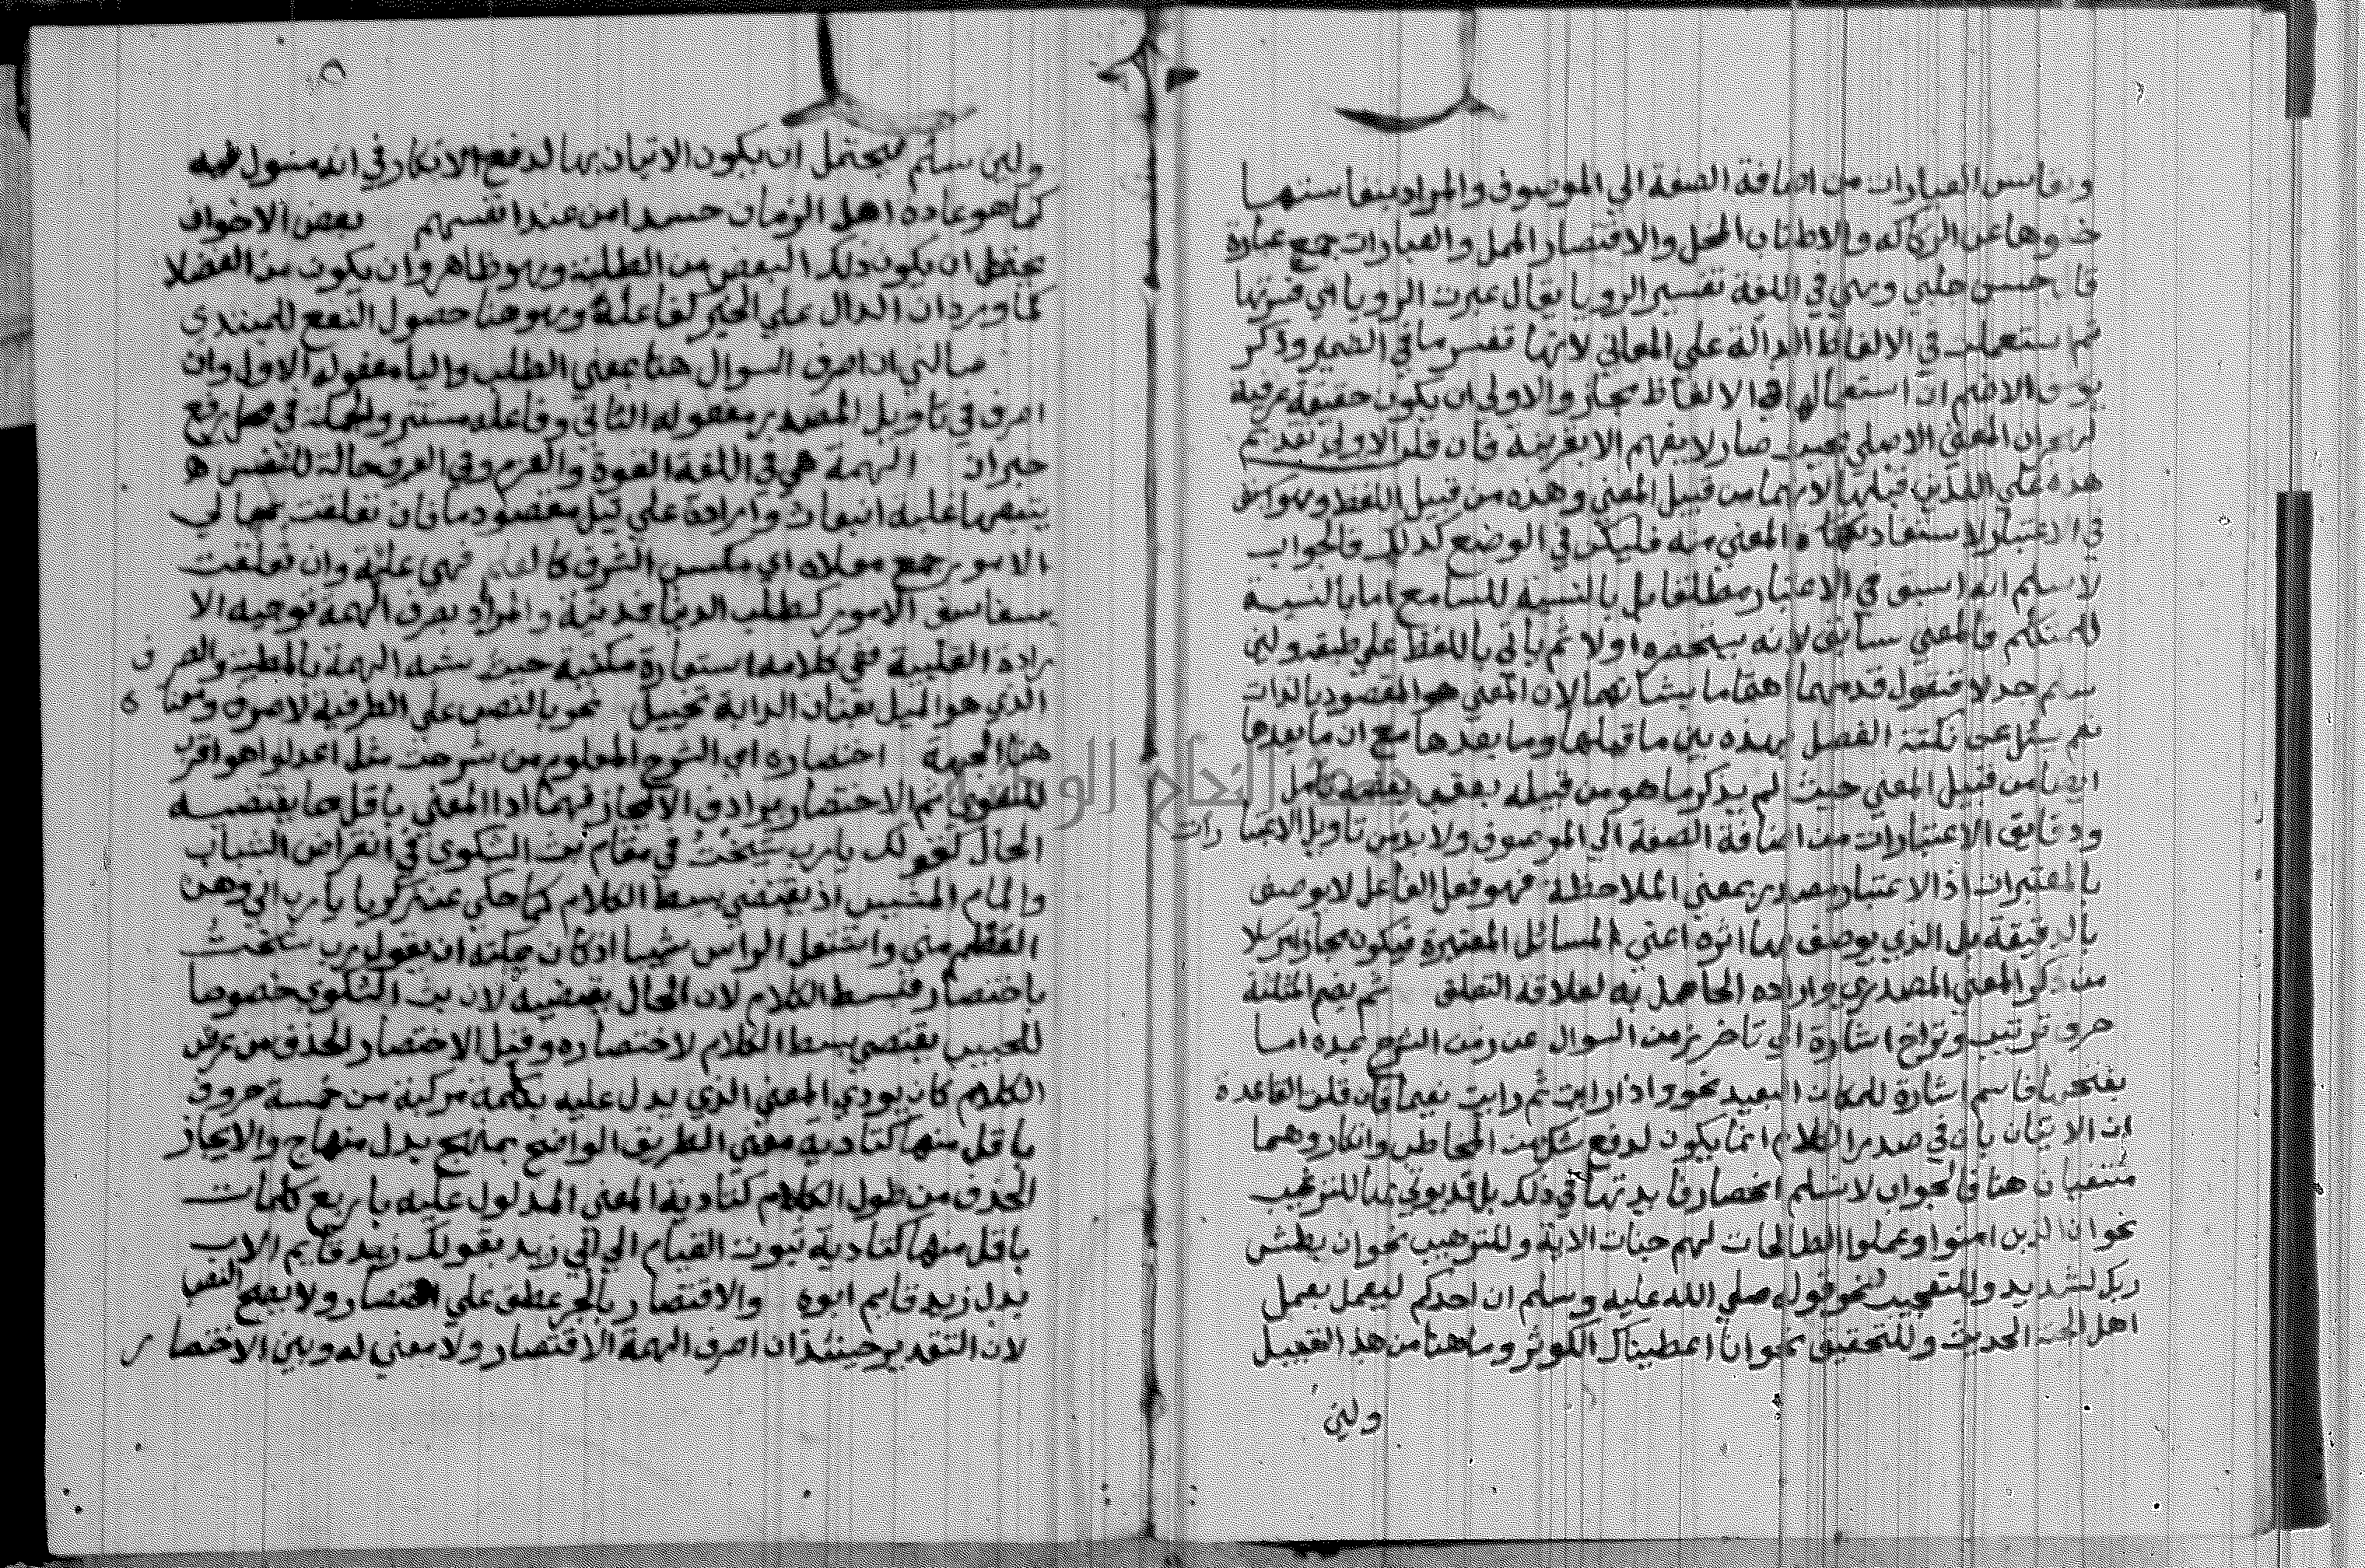 ونفايس العبارات من اضافة الصفة الي الموصوف والمراد بنفاستها
خلوها عن الركاكه والاطناب الممل والاقتصار المخل والعبارات جمع عبارة
قا حسن جلبي وهي في اللغة تفسير الرويا يقال عبرت الرويا اي فسرتها
ثم ستعملت في الالفاظ الدالة علي المعاني لانها تفسر ما في الضمير وذكر
الاقلم ان استعمالها في الالفاظ مجاز والاولي ان يكون حقيقة عرفية
المعني الاصلي بحيث صار لا يفهم الا بقرينة فان قلت الاولي تقديم
هذه علي اللذين قبلها لانهما من قبيل المعني وهذه من قبيل اللفظ وهو
في الاعتبار لاستفادتكا المعني منه فليكن في الوضع كذلك فالجواب
لا نسلم انه اسبق في الاعتبار مطلقا بل بالنسبة للسامع اما بالنسبة
للمتكلم فالمعني سابق لانه يستحضره اولا ثم ياتي باللفظ علي طبقه ولين
فنقول قدمهما اهتماما بشانهما لان المعني هو المقصود بالذات
نعم يسئل عن نكتة الفصل بهذه بين ما قبلها وما بعدها مع ان ما بعدها
ايضا من قبيل المعني حيث لم يذكر ما هو من قبيله بعقب بعضه تامل
ودقايق الاعتبارات من اضافة الصفة الي الموصوف ولا بد من تاويل الاعتبارات
بالمعتبرات اذ الاعتبار مصدر بمعني الملاحظة فهو فعل الفاعل لا يوصف
بالدقيقة بل الذي يوصف بها اثره اعني المسائل المعتبرة فيكون مجاز مرسلا
من ذكر المعني المصدري وارادة الحاصل به لعلاقة التعلق ثم بضم المثلثة
حرف ترتيب وتراخ اشارة الي تاخر زمن السوال عن زمن الشرح عبده اما
بفتحها فاسم اشارة للمكان البعيد نحو واذا رايت ثم رايت نعيما فان قلت القاعدة
ان الاتيان بان في صدر الكلام انما يكون لدفع شك من المخاطب وانكار وهما
منتفيان هنا فالجواب لا نسلم انحصار فايدتها في ذلك بل قد يوتي بها للترغيب
نحو ان الذين امنوا وعملوا الصالحات لهم جنات الاية وللترهيب نحو ان بطش
ربك لشديد وللتعجيب نحو قوله صلي الله عليه وسلم ان احدكم ليعمل بعمل
اهل الجنة الحديث وللتحقيق نحو انا اعطيناك الكوثر وما هنا من هذا القبيل
ولين
ولين سلم فيحتمل ان يكون الاتيان بها لدفع الانكار في انه مسول فيه
كما هو عادة اهل الزمان حسدا من عند انفسهم بعض الاخوان
يحتمل ان يكون ذلك البعض من الطلبة وهو ظاهر وان يكون من الفضلا
كما ورد ان الدال علي الخير كفاعله وهو هنا حصول النفع للمبتدي
سالني ان اصرف السوال هنا بمعني الطلب واليا مفعوله الاول وان
اصرف في تاويل المصدر مفعوله الثاني وفاعله مستتر والجملة في محل رفع
خبر ان الهمة هي في اللغة القوة والعزم وفي العرف حالة للنفس
يتبعها غلبة انبعاث وارادة علي نيل مقصود ما فان تعلقت بمعالي
الامور جمع معلاة اي مكسب الشرف كا فهي علية وان تعلقت
بسفاسف الامور كطلب الدنيا فدنية والمراد بصرف الهمة توجيه الا
رادة القلبية ففي كلامه استعارة مكنية حيث شبه الهمة بالمطية والصرف
الذي هو الميل بعنان الدابة تخييل نحو بالنصب علي الظرفية لاصرف ومعنا
هنا الجهة اختصاره اي الشرح المعلوم من شرحت مثل اعدلوا هو اقرب
للتقوي ثم الاختصار يرادف الايجاز فهما ادا المعني باقل مما يقتضيه
الحال كقولك يارب شيخت في مقام بث الشكوي في انقراض الشباب
والمام المشيب اذ يقتضي بسط الكلام كما حكي عن زكريا يارب اني وهن
العظم مني واشتعل الراس شيبا اذ كان يمكنه ان يقول رب شخت
باختصار فبسط الكلام لان الحال يقتضيه لان بث الشكوي خصوصا
للحبيب يقتضي بسط الكلام لاختصاره وقيل الاختصار الحذف من عرض
الكلام كان يودي المعني الذي يدل عليه بكلمة مركبة من خمسة حروف
باقل منها كتادية معني الطريق الواضح بمنهج بدل منهاج والايجاز
الحذف من طول الكلام كتادية المعني المدلول عليه باربع كلمات
باقل منها كتادية ثبوت القيام الي ابي زيد بقولك زيد قايم الاب
بدل زيد قايم ابوه والاقتصار بالجر عطف علي اختصار ولا يصح النصب
لان التقدير حينئذ ان اصرف الهمة الاقتصار ولا معني له وبين الاختصار